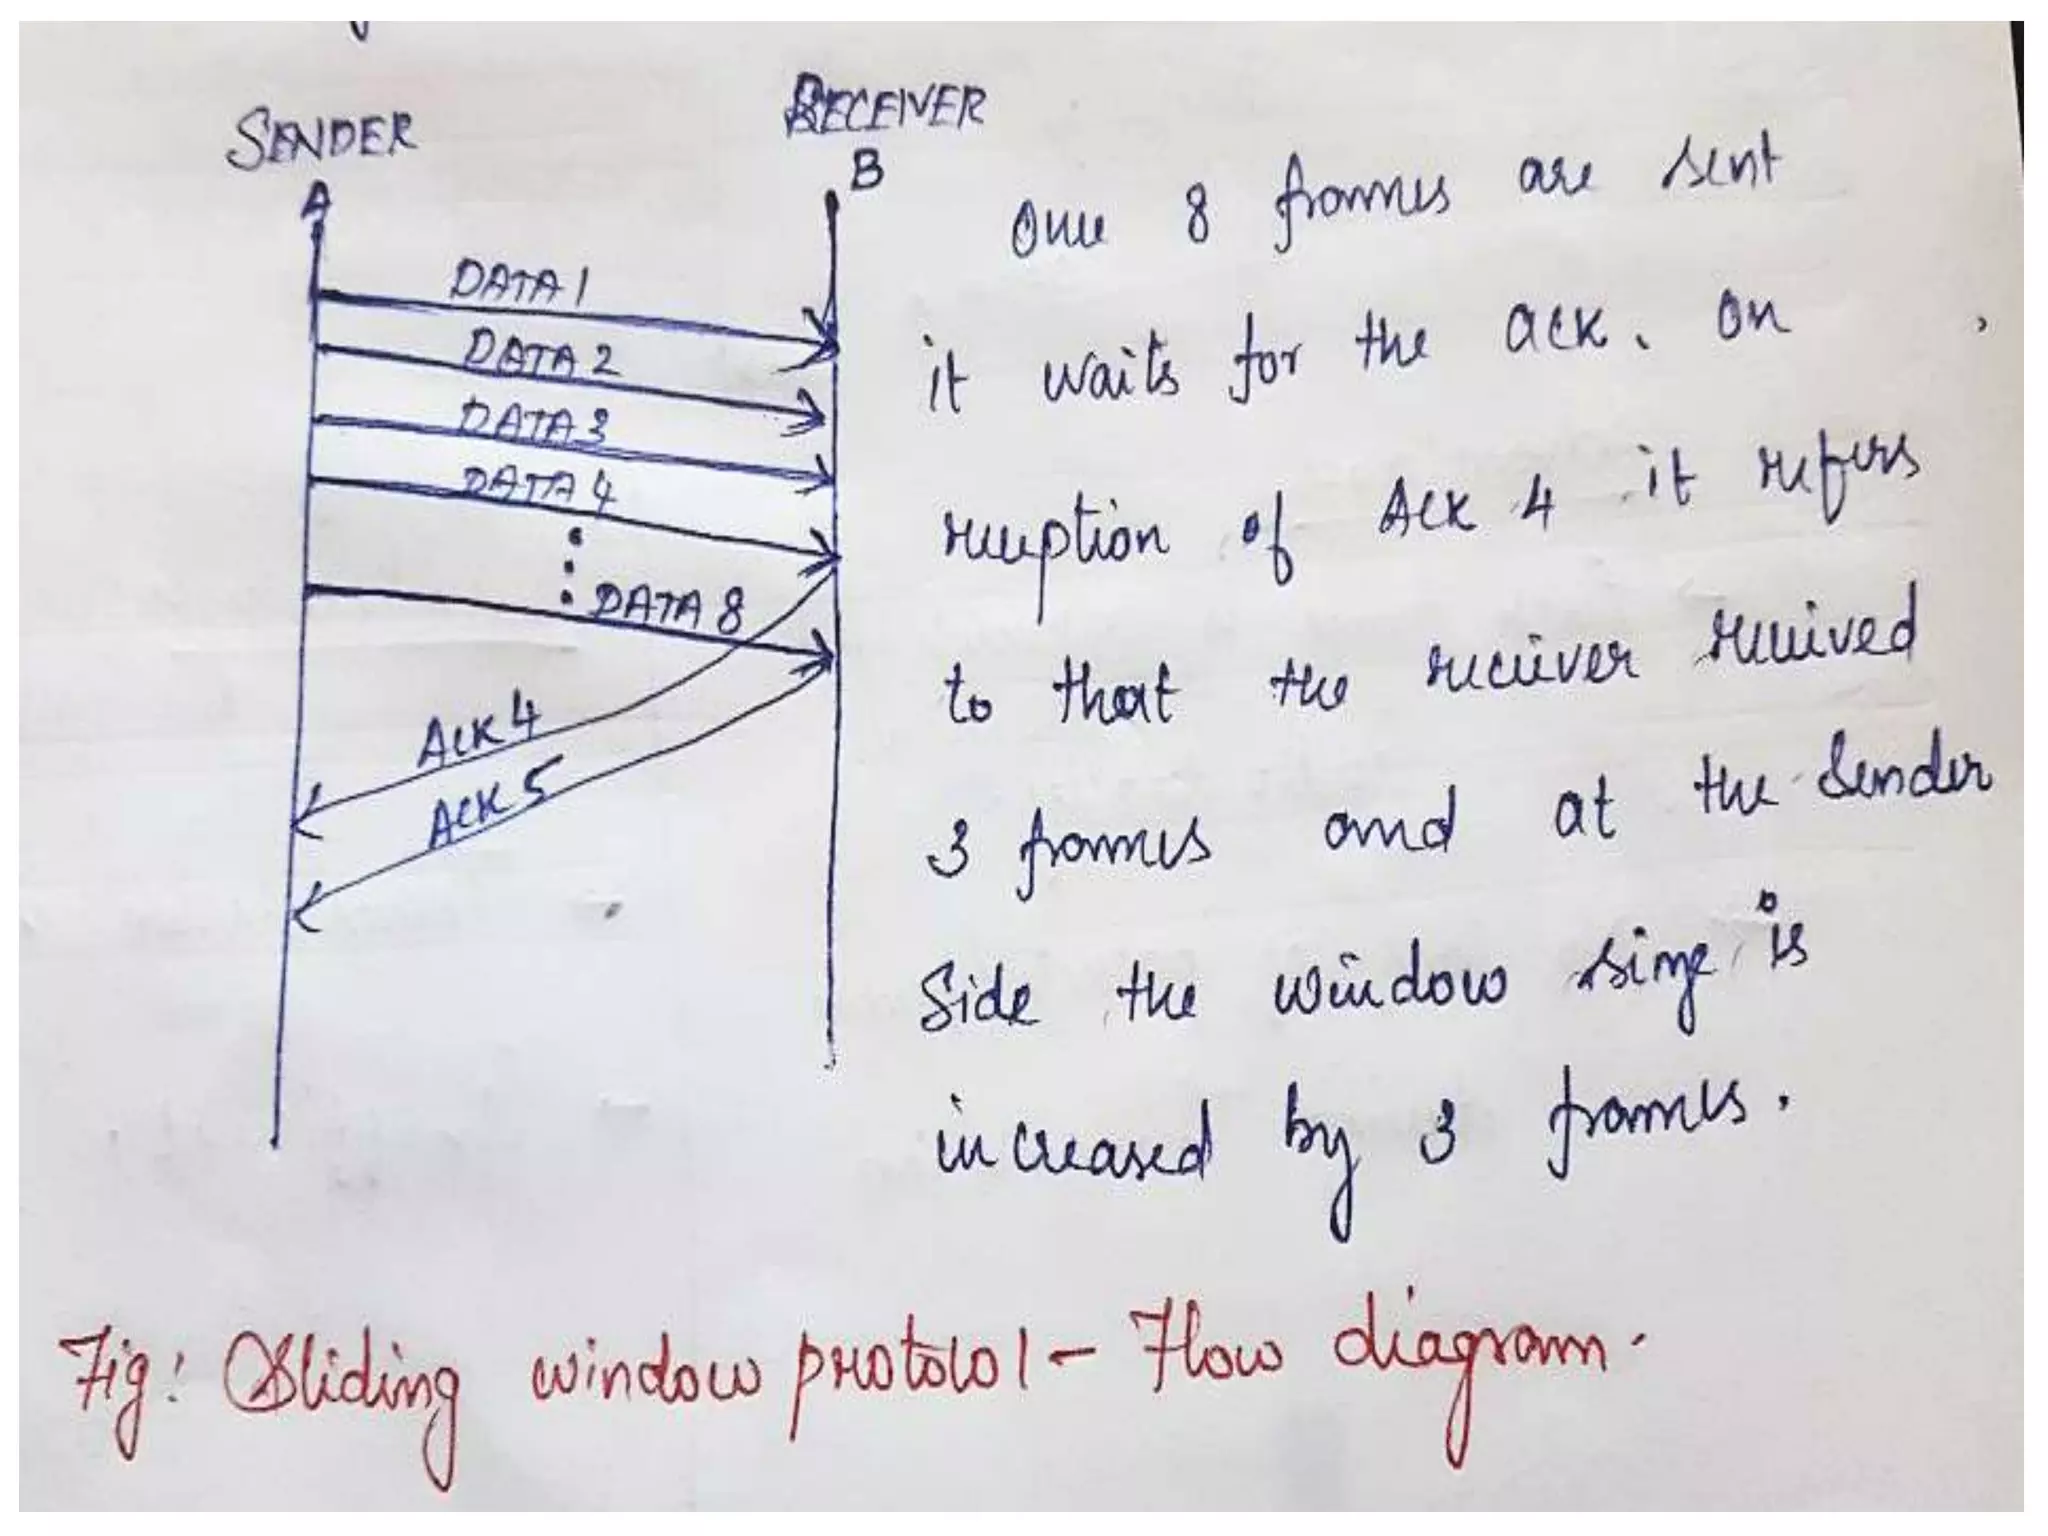 SENDER
A
RECEIVER
B
DATA 1
DATA 2
DATA 3
DATA 4
DATA 8
ACK 4
ACK 5
Once 8 frames are sent
it waits for the ack. On
reception of ACK 4 it refers
to that the receiver received
3 frames and at the Sender
Side the window size is
increased by 3 frames.
Fig: Sliding window protocol - Flow diagram.